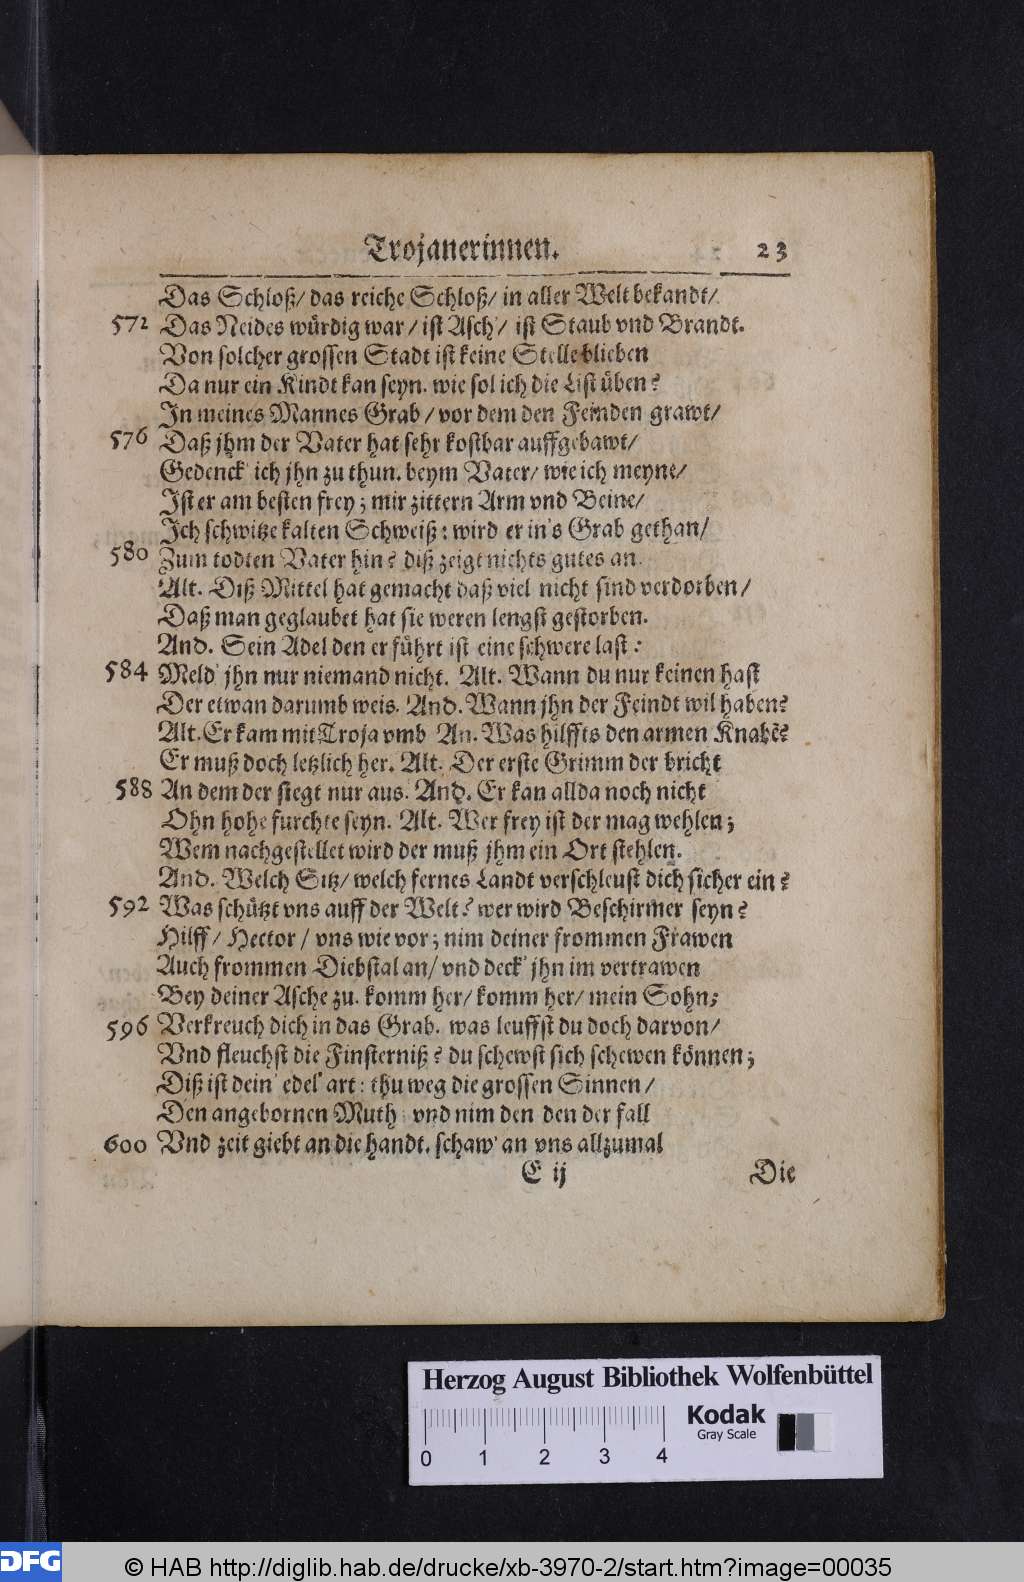 Trojanerinnen. 23
Das Schloß/ das reiche Schloß/ in aller Welt bekandt/
572 Das Neides würdig war/ ist Asch'/ ist Staub vnd Brandt.
Von solcher grossen Stadt ist keine Stelle blieben
Da nur ein Kindt kan seyn. wie sol ich die List üben?
In meines Mannes Grab/ vor dem den Feinden grawt/
576 Daß jhm der Vater hat sehr kostbar auffgebawt/
Gedenck' ich jhn zu thun. beym Vater/ wie ich meyne/
Ist er am besten frey; mir zittern Arm vnd Beine/
Ich schwitze kalten Schweiß: wird er in's Grab gethan/
580 Zum todten Vater hin? diß zeigt nichts gutes an.
Alt. Diß Mittel hat gemacht daß viel nicht sind verdorben/
Daß man geglaubet hat sie weren lengst gestorben.
And. Sein Adel den er führt ist eine schwere last:
584 Meld' jhn nur niemand nicht. Alt. Wann du nur keinen hast
Der etwan darumb weis. And. Wann jhn der Feindt wil haben?
Alt. Er kam mit Troja vmb An. Was hilffts den armen Knabē?
Er muß doch letzlich her. Alt. Der erste Grimm der bricht
588 An dem der siegt nur aus. And. Er kan allda noch nicht
Ohn hohe furchte seyn. Alt. Wer frey ist der mag wehlen;
Wem nachgestellet wird der muß jhm ein Ort stehlen.
And. Welch Sitz/ welch fernes Landt verschleust dich sicher ein?
592 Was schützt vns auff der Welt? wer wird Beschirmer seyn?
Hilff/ Hector/ vns wie vor; nim deiner frommen Frawen
Auch frommen Diebstal an/ vnd deck' jhn im vertrawen
Bey deiner Asche zu. komm her/ komm her/ mein Sohn;
596 Verkreuch dich in das Grab. was leuffst du doch darvon/
Vnd fleuchst die Finsterniß? du schewst sich schewen können;
Diß ist dein' edel' art: thu weg die grossen Sinnen/
Den angebornen Muth; vnd nim den den der fall
600 Vnd zeit giebt an die handt. schaw' an vns allzumal
E ij Die
Herzog August Bibliothek Wolfenbüttel
Kodak
Gray Scale
0 1 2 3 4
DFG © HAB http://diglib.hab.de/drucke/xb-3970-2/start.htm?image=00035